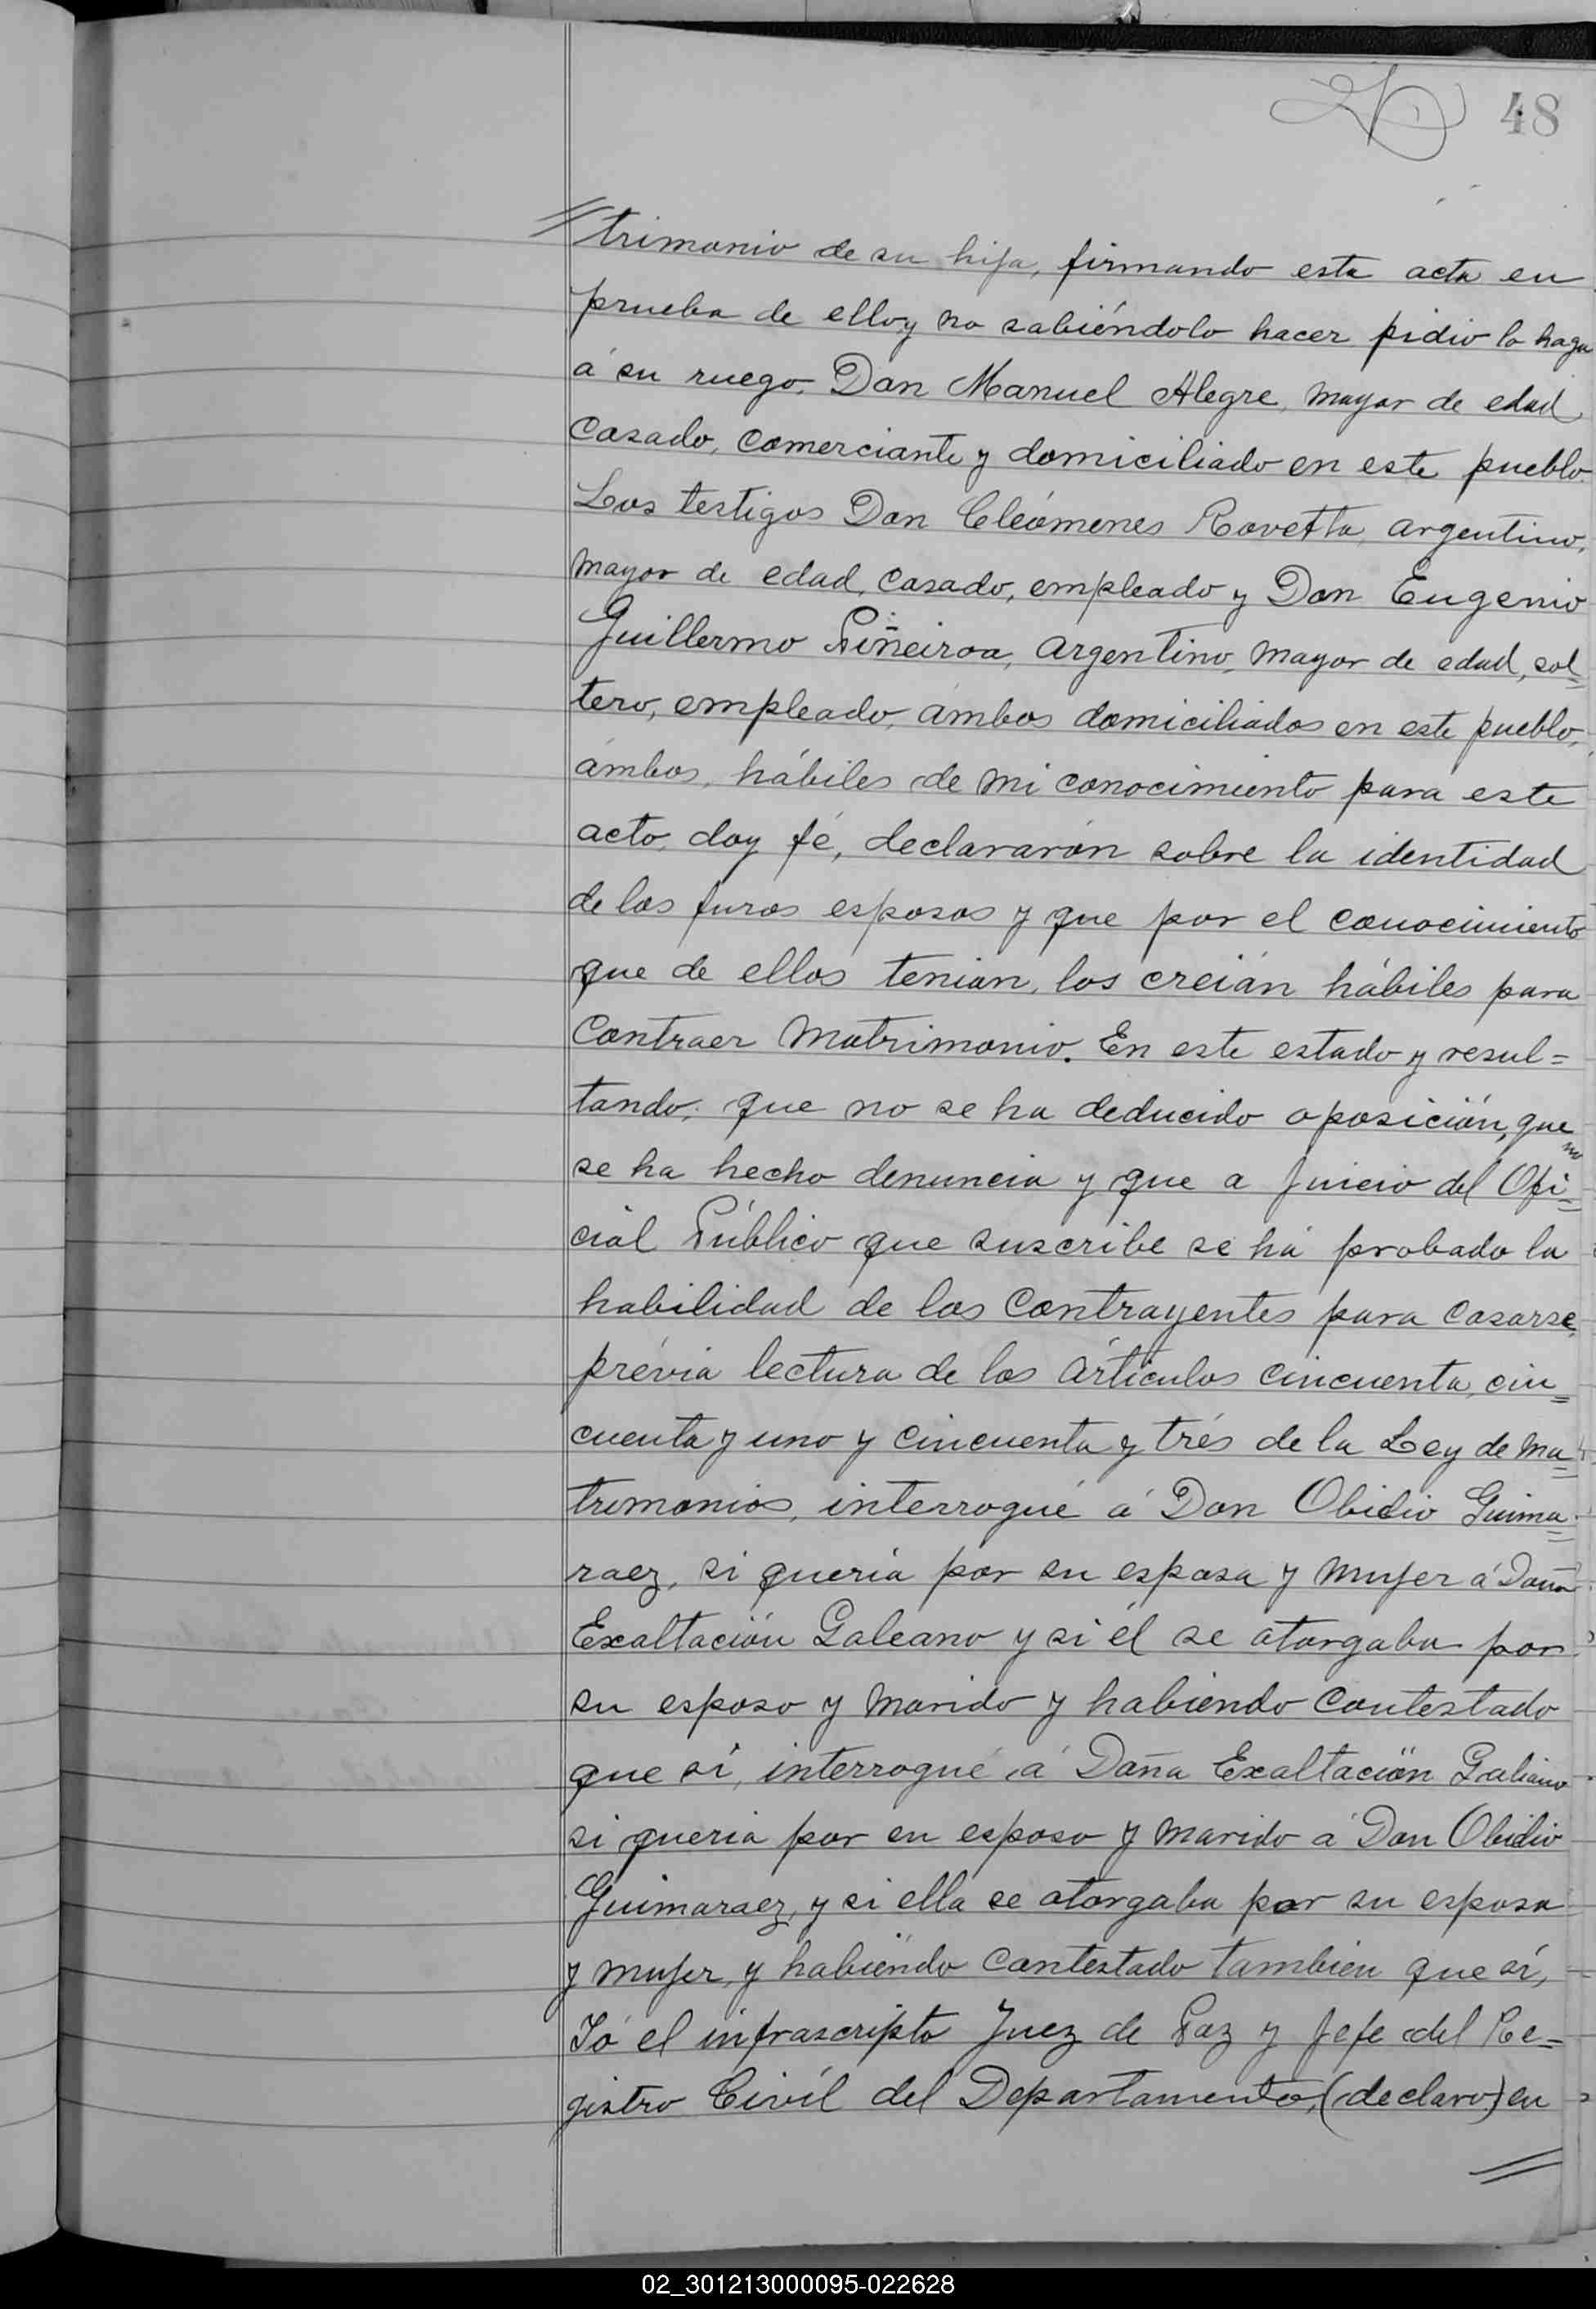 48
trimonio de su hija, firmando esta acta en
prueba de ello y no sabiéndolo hacer pidio lo haga
á su ruego, Don Manuel Alegre, mayor de edad,
casado, comerciante y domiciliado en este pueblo.
Los testigos Don Cleómenes Rovetta, argentino,
mayor de edad, casado, empleado y Don Eugenio
Guillermo Piñeiroa, argentino, mayor de edad, sol=
tero, empleado, ámbos domiciliados en este pueblo,
ámbos, hábiles de mi conocimiento para este
acto, doy fé, declararón sobre la identidad
de los furos esposos y que por el conocimiento
que de ellos tenian, los creián hábiles para
contraer matrimonio. En este estado y resul=
tando, que no se ha deducido oposición, que no
se ha hecho denuncia y que a juicio del Ofi=
cial Público que suscribe se há probado la
habilidad de los contrayentes para casarse,
prévia lectura de los ártículos cincuenta, cin=
cuenta y uno y cincuenta y trés de la Ley de ma=
trimonios, interrogué á Don Obidio Guima=
raez, si queria por su esposa y mujer á Doña
Exaltación Galeano y si él se otorgaba por
su esposo y marido y habiendo contestado
que si, interrogué á Doña Exaltación Galiano
si queria por su esposo y marido á Don Obidio
Guimaraez, y si ella se otorgaba por su esposa
y mujer, y habiéndo contestado tambien que sí,
Yó el infrascripto Juez de Paz y Jefe del Re=
gistro Civíl del Departamento, (declaro) en
02_301213000095-022628